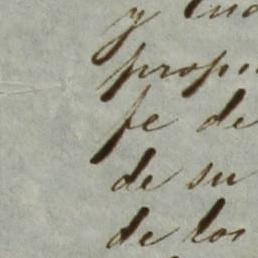 y
propi
fe de
de su
de los